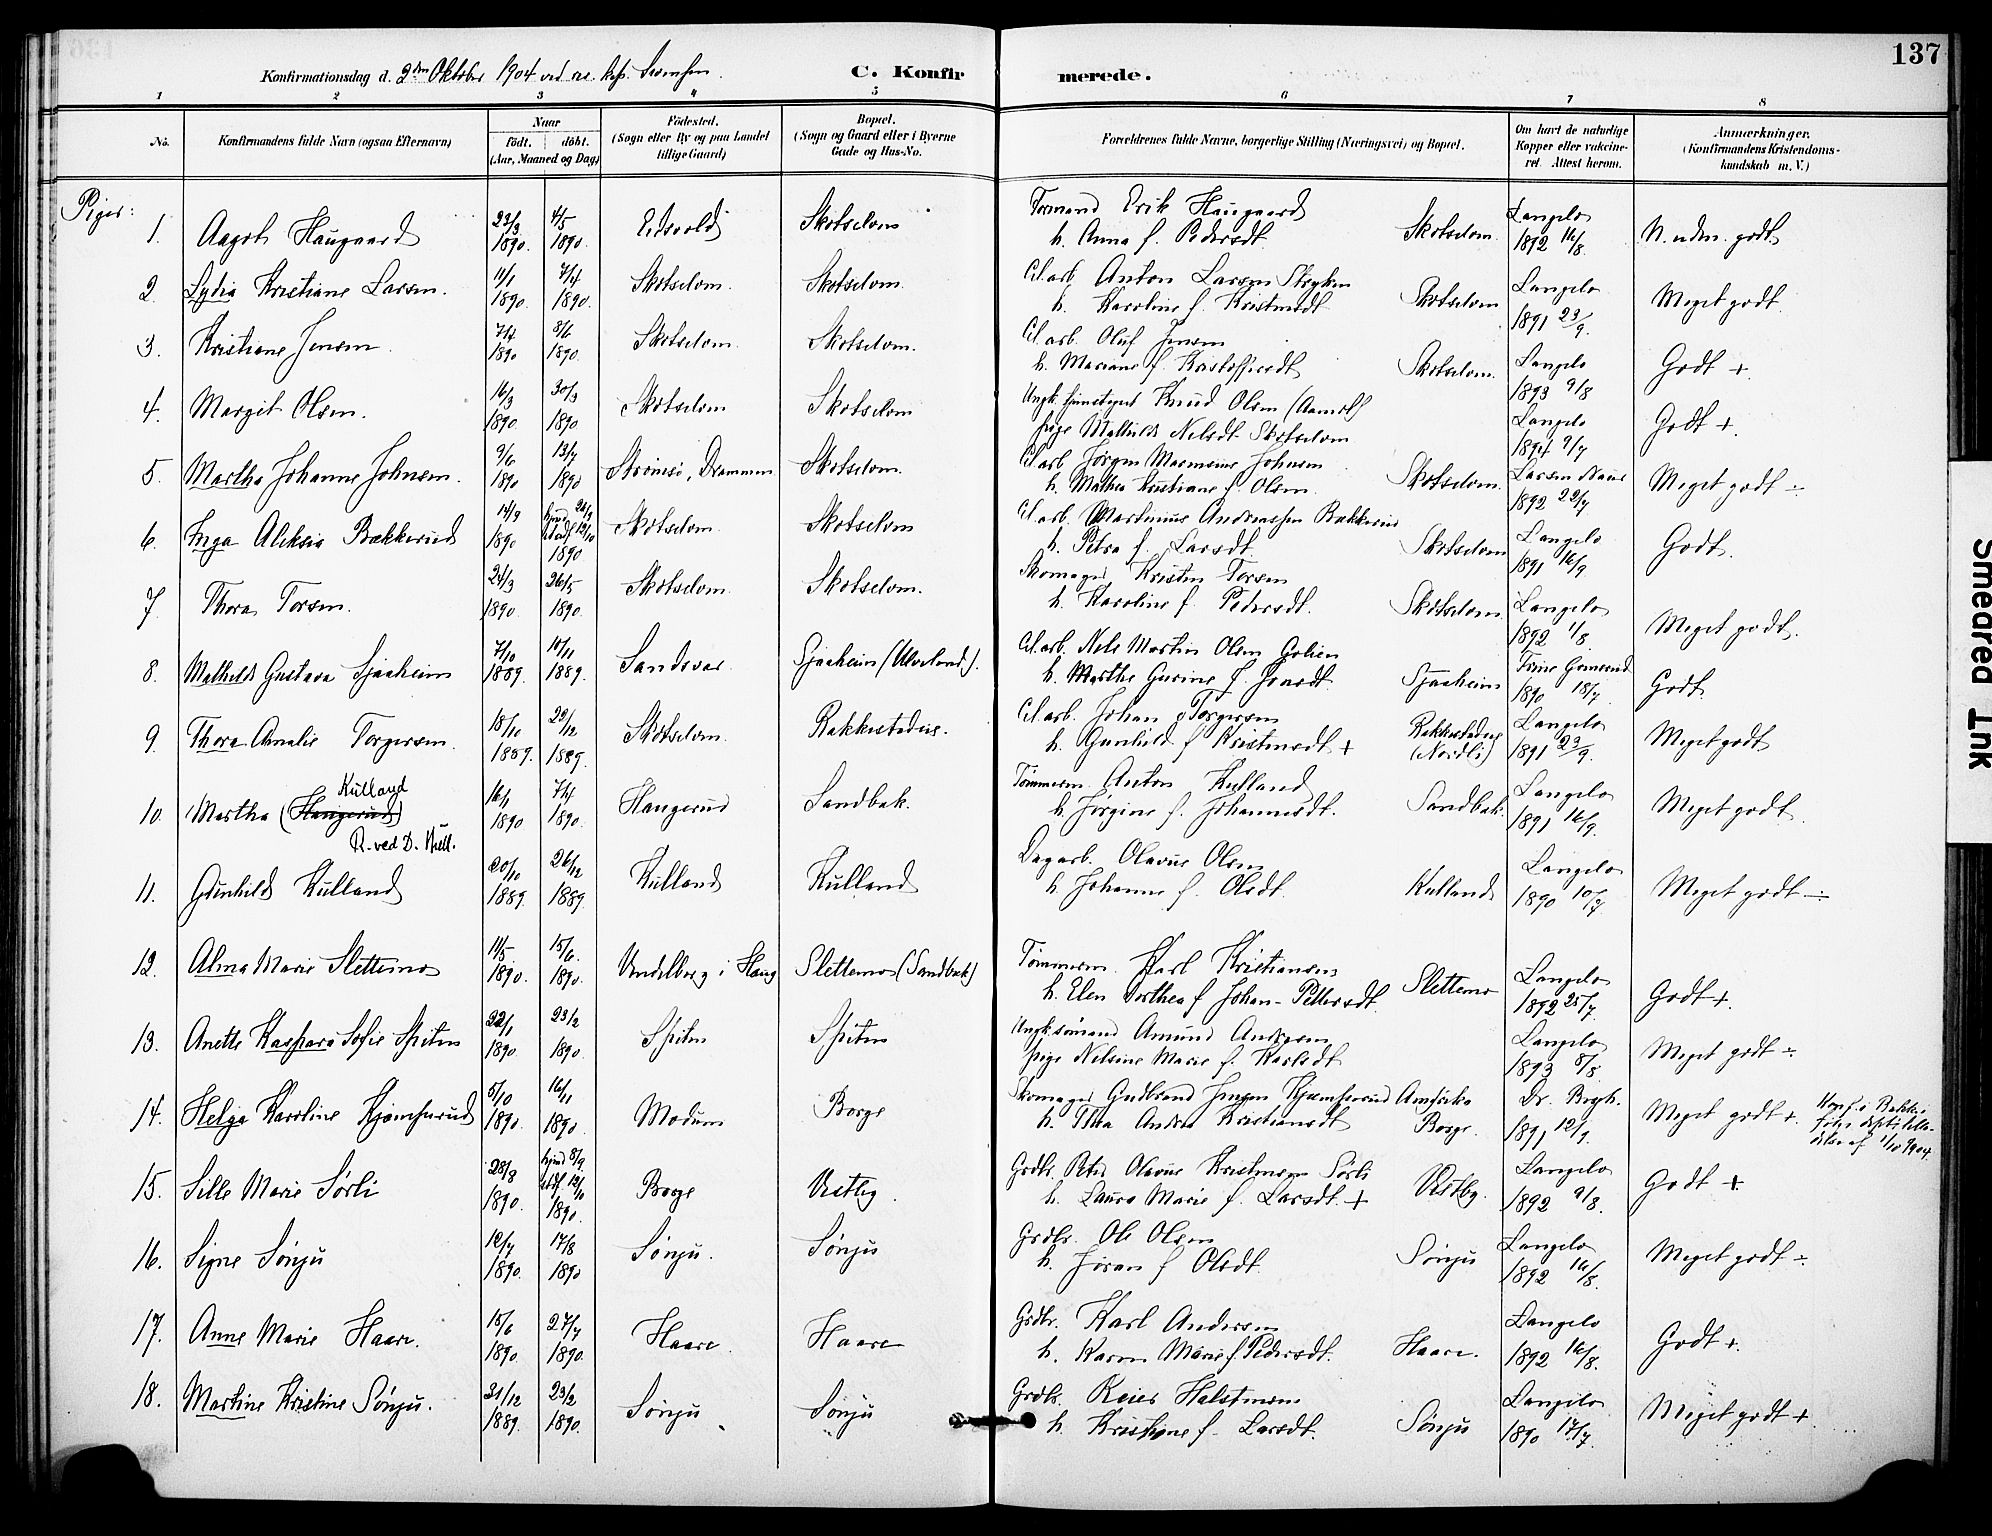 137
Konfirmationsdag d. 2den Oktober 1904 ved
C. Konfirmerede.
1 2 3 4 5 6 7 8
No.
Konfirmandens fulde Navn (ogsaa Efternavn)
Naar
født. døbt.
(Aar, Maaned og Dag)
Fødested.
(Sogn eller By og paa Landet
tillige Gaard)
Bopæl.
(Sogn og Gaard eller i Byerne
Gade og Hus-No.
Forældrenes fulde Navne, borgerlige Stilling (Næringsvei) og Bopæl.
Om havt de naturlige
Kopper eller vakcine-
ret. Attest herom.
Anmærkninger.
(Konfirmandens Kristendoms-
kundskab m. V.)
Piger:
1. Aagot Haugaard 23/3 1890. 4/5 1890. Eidsvold Skotselven Formand Erik Haugaard
h. Anna f. Pedersdt. Skotselven. Langelo 1892 16/8. N. udm. godt
2. Lydia Kristiane Larsen. 11/1 1890. 7/4 1890. Skotselven. Skotselven. Cel.arb. Anton Larsen Stryken
h. Karoline f. Kristensdt. Skotselven Langelo 1891 23/9. Meget godt.
3. Kristiane Jensen. 7/4 1890 8/6 1890. Skotselven. Skotselven. Cel.arb. Oluf Jensen
h. Mariane f. Kristoffersdt. Skotselven. Langelo 1893 9/8 Godt +.
4. Margit Olsen. 16/3 1890. 30/3 1890 Skotselven Skotselven Ungk. Knud Olsen (Aamot)
pige Mathilde Nilsdt. Skotselven Langelo 1894 9/7 Godt +.
5. Martha Johanne Johnsen. 9/6 1890 13/7 1890 Strømsø, Drammen Skotselven. Cel.arb. Jørgen Marinius Johnsen
h. Mathea Kristiane f. Olsen. Skotselven. Larsen 1892 22/7 Meget godt ÷
6. Inga Aleksia Bækkerud 14/9 1890 hjmd 21/9 1890 Skotselven. Skotselven Cel.arb. Martinius Andreassen Bækkerud
h. Petra f. Larsdt. Skotselven Langelo 1891 16/9. Godt.
7. Thora Torsen. 24/3 1890. 26/5 1890. Skotselven. Skotselven. Skomager Kristen Torsen
h. Karoline f. Pedersdt. Skotselven. Langelo 1892 1/8. Meget godt.
8. Mathilde Gustava Sjaaheim 7/10 1889. 10/11 1889. Sandsvær. Sjaaheim (Ulvelund). Cel.arb. Nils Martin Olsen Golien
h. Marthe Gurine f. Jonsdt. Sjaaheim 1890 18/7. Godt.
9. Thora Amalie Torgersen. 18/10 1889. 29/12 1889. Skotselven. Rakkestadeie. Cel.arb. Johan Torgersen
h. Gunhild f. Kristensdt + Rakkestadeie (Nordli) Langelo 1891 23/9. Meget godt
10. Martha (Haugerud) Kulland
R. ved D. Kull. 16/1 1890 7/4 1890. Haugerud Sandbæk. Tømmerm. Anton Kulland
h. Jørgine f. Johannesdt. Sandbæk. Langelo 1891 16/9. Meget godt.
11. Gunhild Kulland 20/10 1889. 26/12 1889. Kulland Kulland Dagarb. Olavus Olsen
h. Johanne f. Olsdt. Kulland Langelo 1890 10/7. Meget godt ÷
12. Alma Marie Slettemo 11/5 1890. 15/6. 1890. Vendelborg i Haug Slettemo (Sandbæk) Tømmerm. Karl Kristiansen
h. Elen Dorthea f. Johan-Pettersdt. Slettemo Langelo 1892 25/7. Godt +.
13. Anette Kaspara Sofie Spiten 22/1 1890. 23/2 1890. Spiten Spiten Ungk. sømand Amund Andersen
pige Nilsine Marie f. Karlsdt Langelo 1893 8/8. Meget godt ÷
14. Helga Karoline Kjemperud 5/10 1890. 16/11 1890. Modum Borge Skomager Gudbrand Jensen Kjemperud Amerika
h. Thea Andrea Kristiansdt Borge. Dr. 1891 12/9. Meget godt +. Konf. i Bakke
af 1/10 1904.
15. Sille Marie Sørli 28/8 1890. hjmd 8/9. 1890. Borge Vestby. Grdbr. Peter Olavus Kristensen Sørli
h. Laura Marie f. Larsdt. + Vestby. Langelo 1892 9/8. Godt +
16. Signe Sønju 12/7 1890. 17/8 1890 Sønju. Sønju Grdbr. Ole Olsen
h. Jøran f. Olsdt. Sønju Langelo 1892 16/8. Meget godt ÷
17. Anne Marie Haare. 15/6 1890. 27/7 1890. Haare. Haare Grdbr. Karl Andersen
h. Karen Marie f. Pedersdt. Haare. Langelo 1892 16/8. Godt +.
18. Martine Kristine Sønju. 31/12 1889. 23/2 1890. Sønju Sønju Grdbr. Reier Halstensen
h. Kristiane f. Larsdt. Sønju Langelo 1890 17/7. Meget godt +
Smeared Ink